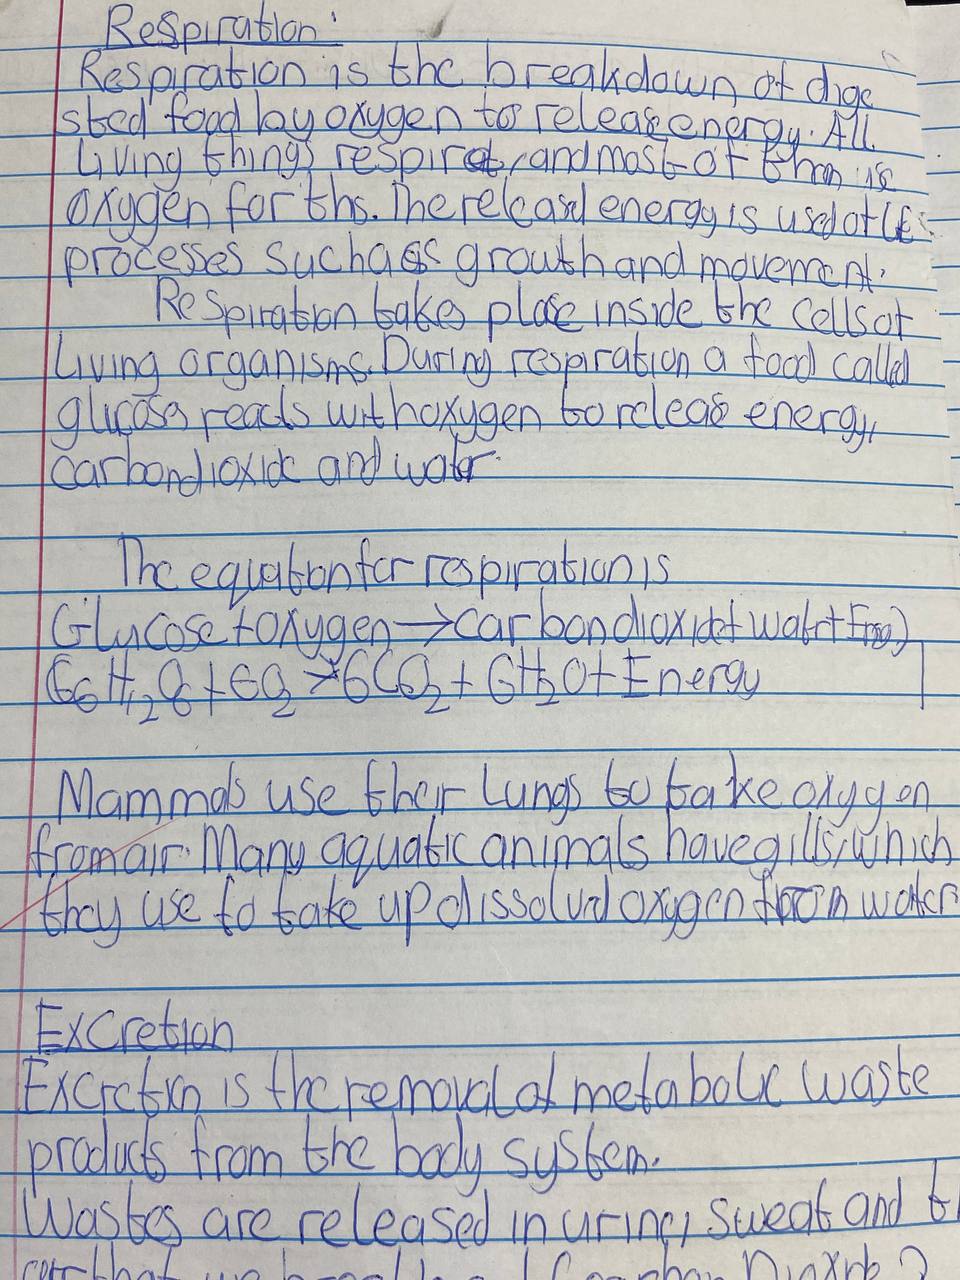 Respiration:
Respiration is the breakdown of dige
sted food by oxygen to release energy. All
living things respirat, and most of them
oxygen for ths. The released energy is used
processes such as growth and movement.
Respiration takes place inside the cells of
living organisms. During respiration a food called
glucose reacts with oxygen to releas energy,
carbondioxide and water.
The equation for respiration is
Glucose + oxygen → carbondioxide + water + Energy
C6H12O6 + 6O2 → 6CO2 + 6H2O + Energy
Mammals use their lungs to take oxygen
from air. Many aquatic animals have gills, which
they use to take up dissolved oxygen from water
Excretion
Excretion is the removal of metabolic waste
products from the body system.
Wastes are released in urine, sweat and
that we